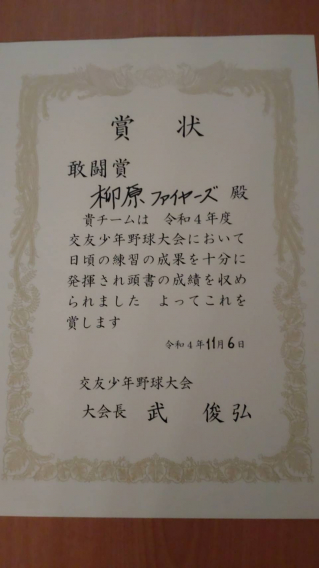 賞状
敢闘賞
柳原ファイヤーズ 殿
貴チームは 令和4年度
交友少年野球大会において
日頃の練習の成果を十分に
発揮され頭書の成績を収め
られました よってこれを
賞します
令和4年11月6日
交友少年野球大会
大会長 武 俊弘